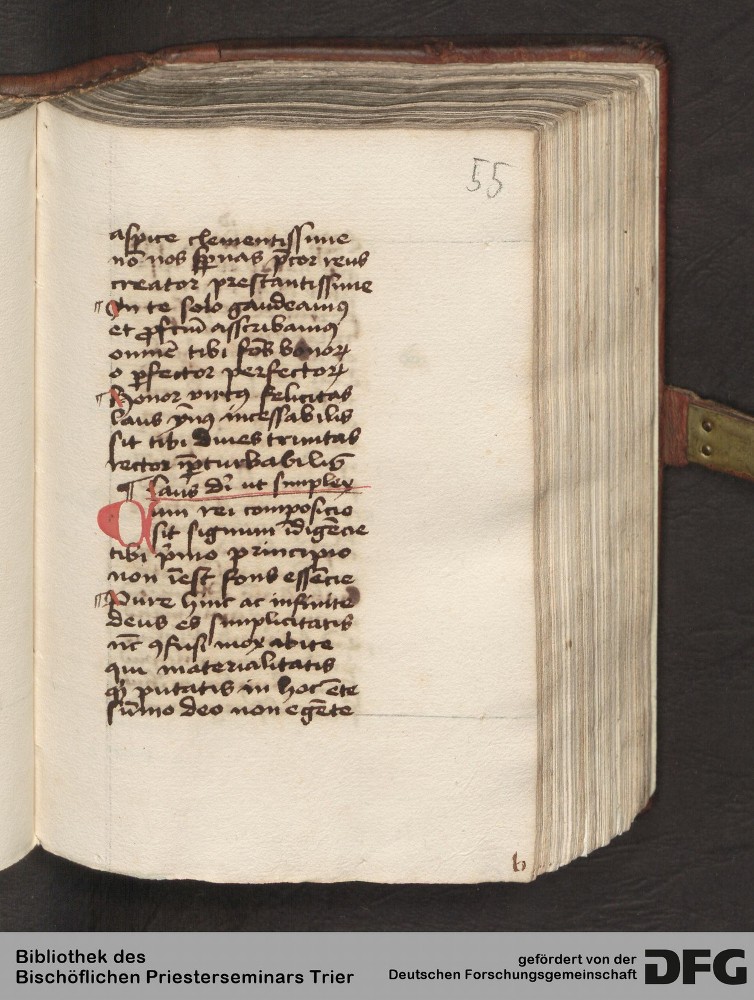 55
aspice clementissime
nō nos spernas p̄cor reus
creator prestantissime
¶ In te solo gaudeamꝰ
et ꝓfectū asscribamꝰ
omnē tibi fons bonoꝝ
o ꝑfector perfectoꝝ
¶ Honor virtꝰ felicitas
laus vnꝰ incessabilis
sit tibi diues trinitas
rector īꝑturbabilis
¶ Laus dī ut simplex
Cum rei composicio
sit signum īdigēcie
tibi p̄mo principio
non īest fons essēcie
¶ Pure hinc ac infinite
deus es simplicitatis
nc̄ ꝯfusi mox abite
qui materialitatis
putatis in hoc ēte
sūmo deo non egēte
b
Bibliothek des
Bischöflichen Priesterseminars Trier
gefördert von der
Deutschen Forschungsgemeinschaft
DFG